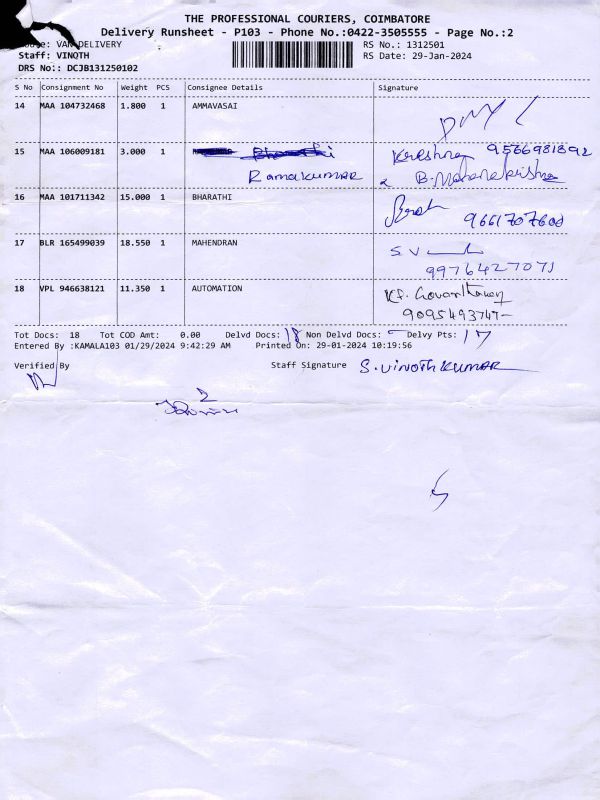 THE PROFESSIONAL COURIERS, COIMBATORE
Delivery Runsheet - P103 - Phone No.:0422-3505555 - Page No.:2
VAN DELIVERY RS No.: 1312501
Staff: VINOTH RS Date: 29-Jan-2024
DRS No.: DCJB131250102
S No Consignment No Weight PCS Consignee Details Signature
14 MAA 104732468 1.800 1 AMMAVASAI
15 MAA 106009181 3.000 1 Bharathi Krishna 9566981892
Ramakumar B.Mohanakrishna
16 MAA 101711342 15.000 1 BHARATHI
9661707608
17 BLR 165499039 18.550 1 MAHENDRAN S.V
9976427071
18 VPL 946638121 11.350 1 AUTOMATION
9095493747-
Tot Docs: 18 Tot COD Amt: 0.00 Delvd Docs: 18 Non Delvd Docs: - Delvy Pts: 17
Entered By :KAMALA103 01/29/2024 9:42:29 AM Printed On: 29-01-2024 10:19:56
Verified By Staff Signature S.VINOTHKUMAR
2